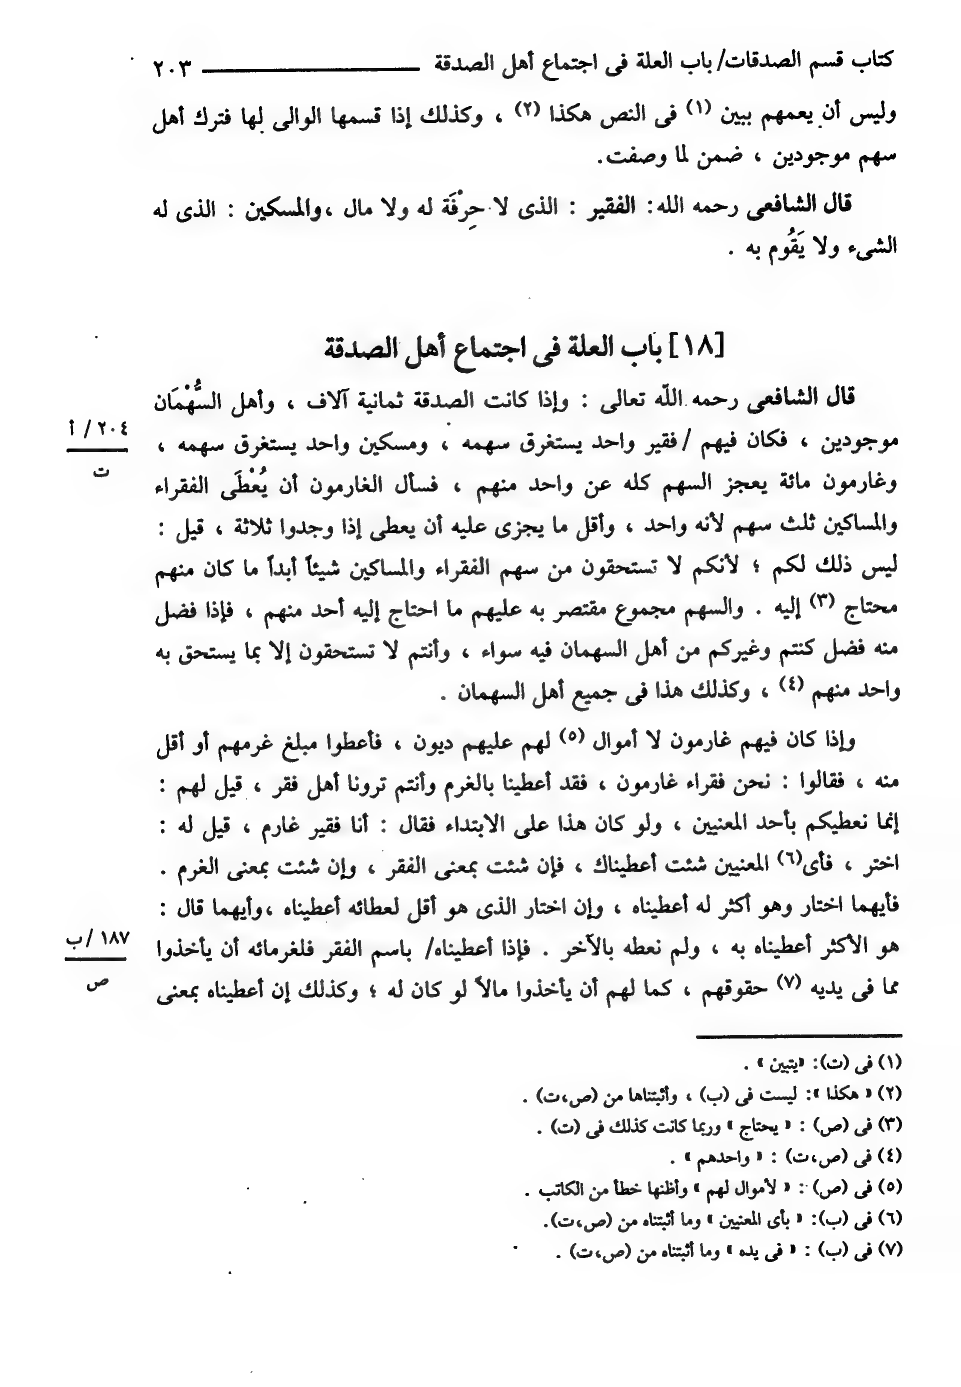 كتاب قسم الصدقات/ باب العلة فى اجتماع أهل الصدقة ٢٠٣
وليس أن يعمهم ببين (١) فى النص هكذا (٢) ، وكذلك إذا قسمها الوالى لها فترك أهل
سهم موجودين ، ضمن لما وصفت.
قال الشافعى رحمه الله: الفقير : الذى لا حِرْفَة له ولا مال ،والمسكين : الذى له
الشىء ولا يَقُوم به .
[١٨] باب العلة فى اجتماع أهل الصدقة
قال الشافعى رحمه اللّه تعالى : وإذا كانت الصدقة ثمانية آلاف ، وأهل السُّهْمَان
موجودين ، فكان فيهم / فقير واحد يستغرق سهمه ، ومسكين واحد يستغرق سهمه ،
٢٠٤ / أ
ت
وغارمون مائة يعجز السهم كله عن واحد منهم ، فسأل الغارمون أن يُعْطَى الفقراء
والمساكين ثلث سهم لأنه واحد ، وأقل ما يجزى عليه أن يعطى إذا وجدوا ثلاثة ، قيل :
ليس ذلك لكم ؛ لأنكم لا تستحقون من سهم الفقراء والمساكين شيئاً أبداً ما كان منهم
محتاج (٣) إليه . والسهم مجموع مقتصر به عليهم ما احتاج إليه أحد منهم ، فإذا فضل
منه فضل كنتم وغيركم من أهل السهمان فيه سواء ، وأنتم لا تستحقون إلا بما يستحق به
واحد منهم (٤) ، وكذلك هذا فى جميع أهل السهمان .
وإذا كان فيهم غارمون لا أموال (٥) لهم عليهم ديون ، فأعطوا مبلغ غرمهم أو أقل
منه ، فقالوا : نحن فقراء غارمون ، فقد أعطينا بالغرم وأنتم ترونا أهل فقر ، قيل لهم :
إنما نعطيكم بأحد المعنيين ، ولو كان هذا على الابتداء فقال : أنا فقير غارم ، قيل له :
اختر ، فأى(٦) المعنيين شئت أعطيناك ، فإن شئت بمعنى الفقر ، وإن شئت بمعنى الغرم .
فأيهما اختار وهو أكثر له أعطيناه ، وإن اختار الذى هو أقل لعطائه أعطيناه ،وأيهما قال :
هو الأكثر أعطيناه به ، ولم نعطه بالآخر . فإذا أعطيناه/ باسم الفقر فلغرمائه أن يأخذوا
١٨٧ /ب
ص
مما فى يديه (٧) حقوقهم ، كما لهم أن يأخذوا مالاً لو كان له ؛ وكذلك إن أعطيناه بمعنى
(١) فى (ت): «يتبين » .
(٢) « هكذا »: ليست فى (ب) ، وأثبتناها من (ص،ت) .
(٣) فى (ص) : « يحتاج » وربما كانت كذلك فى (ت) .
(٤) فى (ص،ت) : « واحدهم » .
(٥) فى (ص) : « لأموال لهم » وأظنها خطأ من الكاتب .
(٦) فى (ب): « بأى المعنيين » وما أثبتناه من (ص،ت).
(٧) فى (ب) : « فى يده » وما أثبتناه من (ص،ت) .